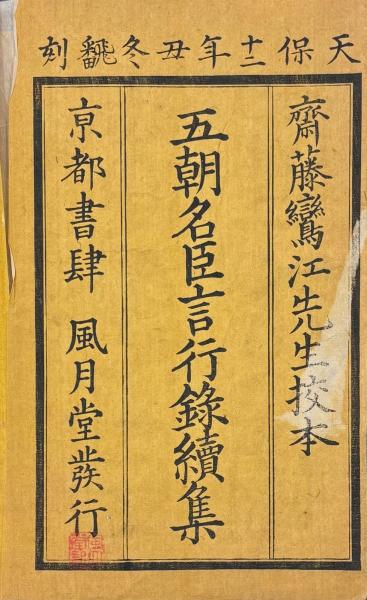 天保十二年丑冬翻刻
齋藤鸞江先生挍本
五朝名臣言行錄續集
京都書肆 風月堂發行